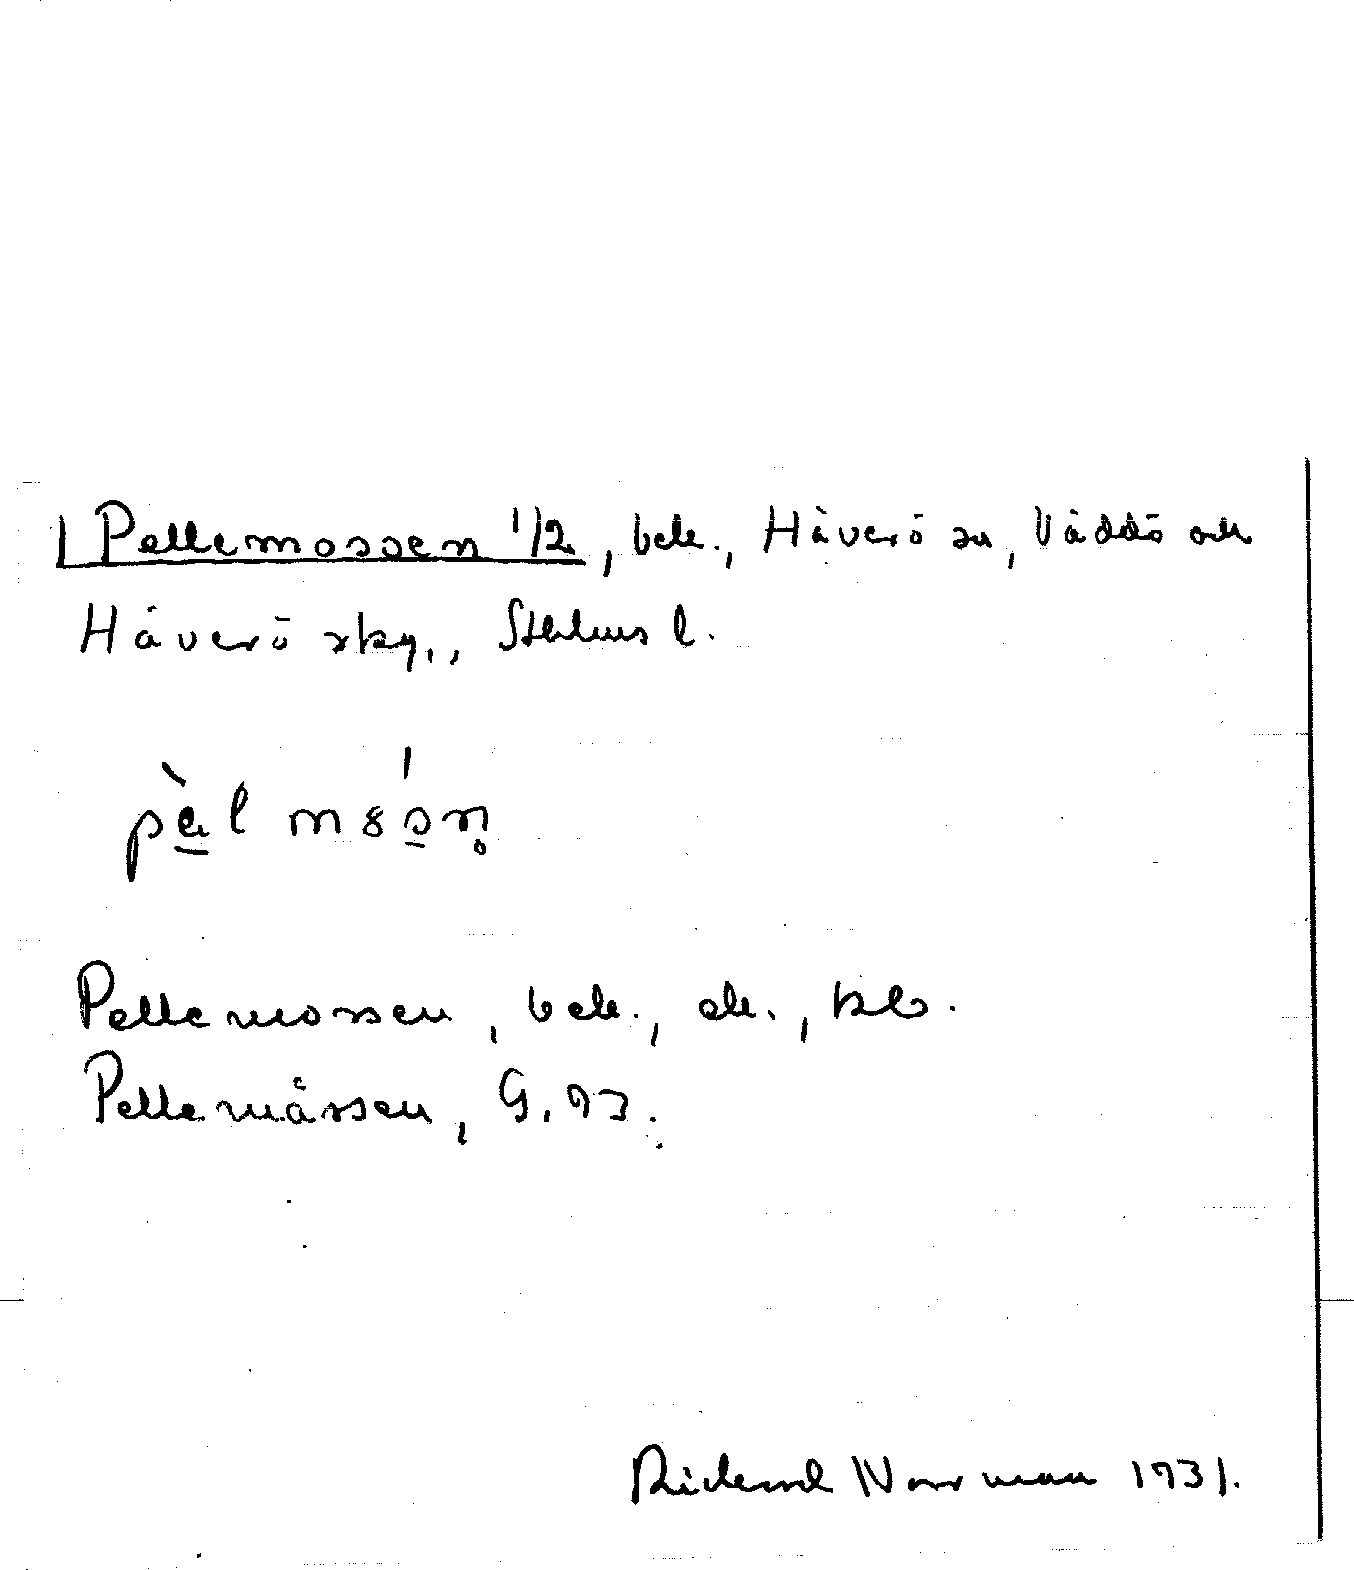 Pellemossen 1/2, bek., Häverö sn, Väddö och
Häverö skg., Sthlms l.
pæ̀l mósn̥
Pellemossen, bek., ek., kb.
Pellemåssen, G. 93.
Rickard Norrman 1931.